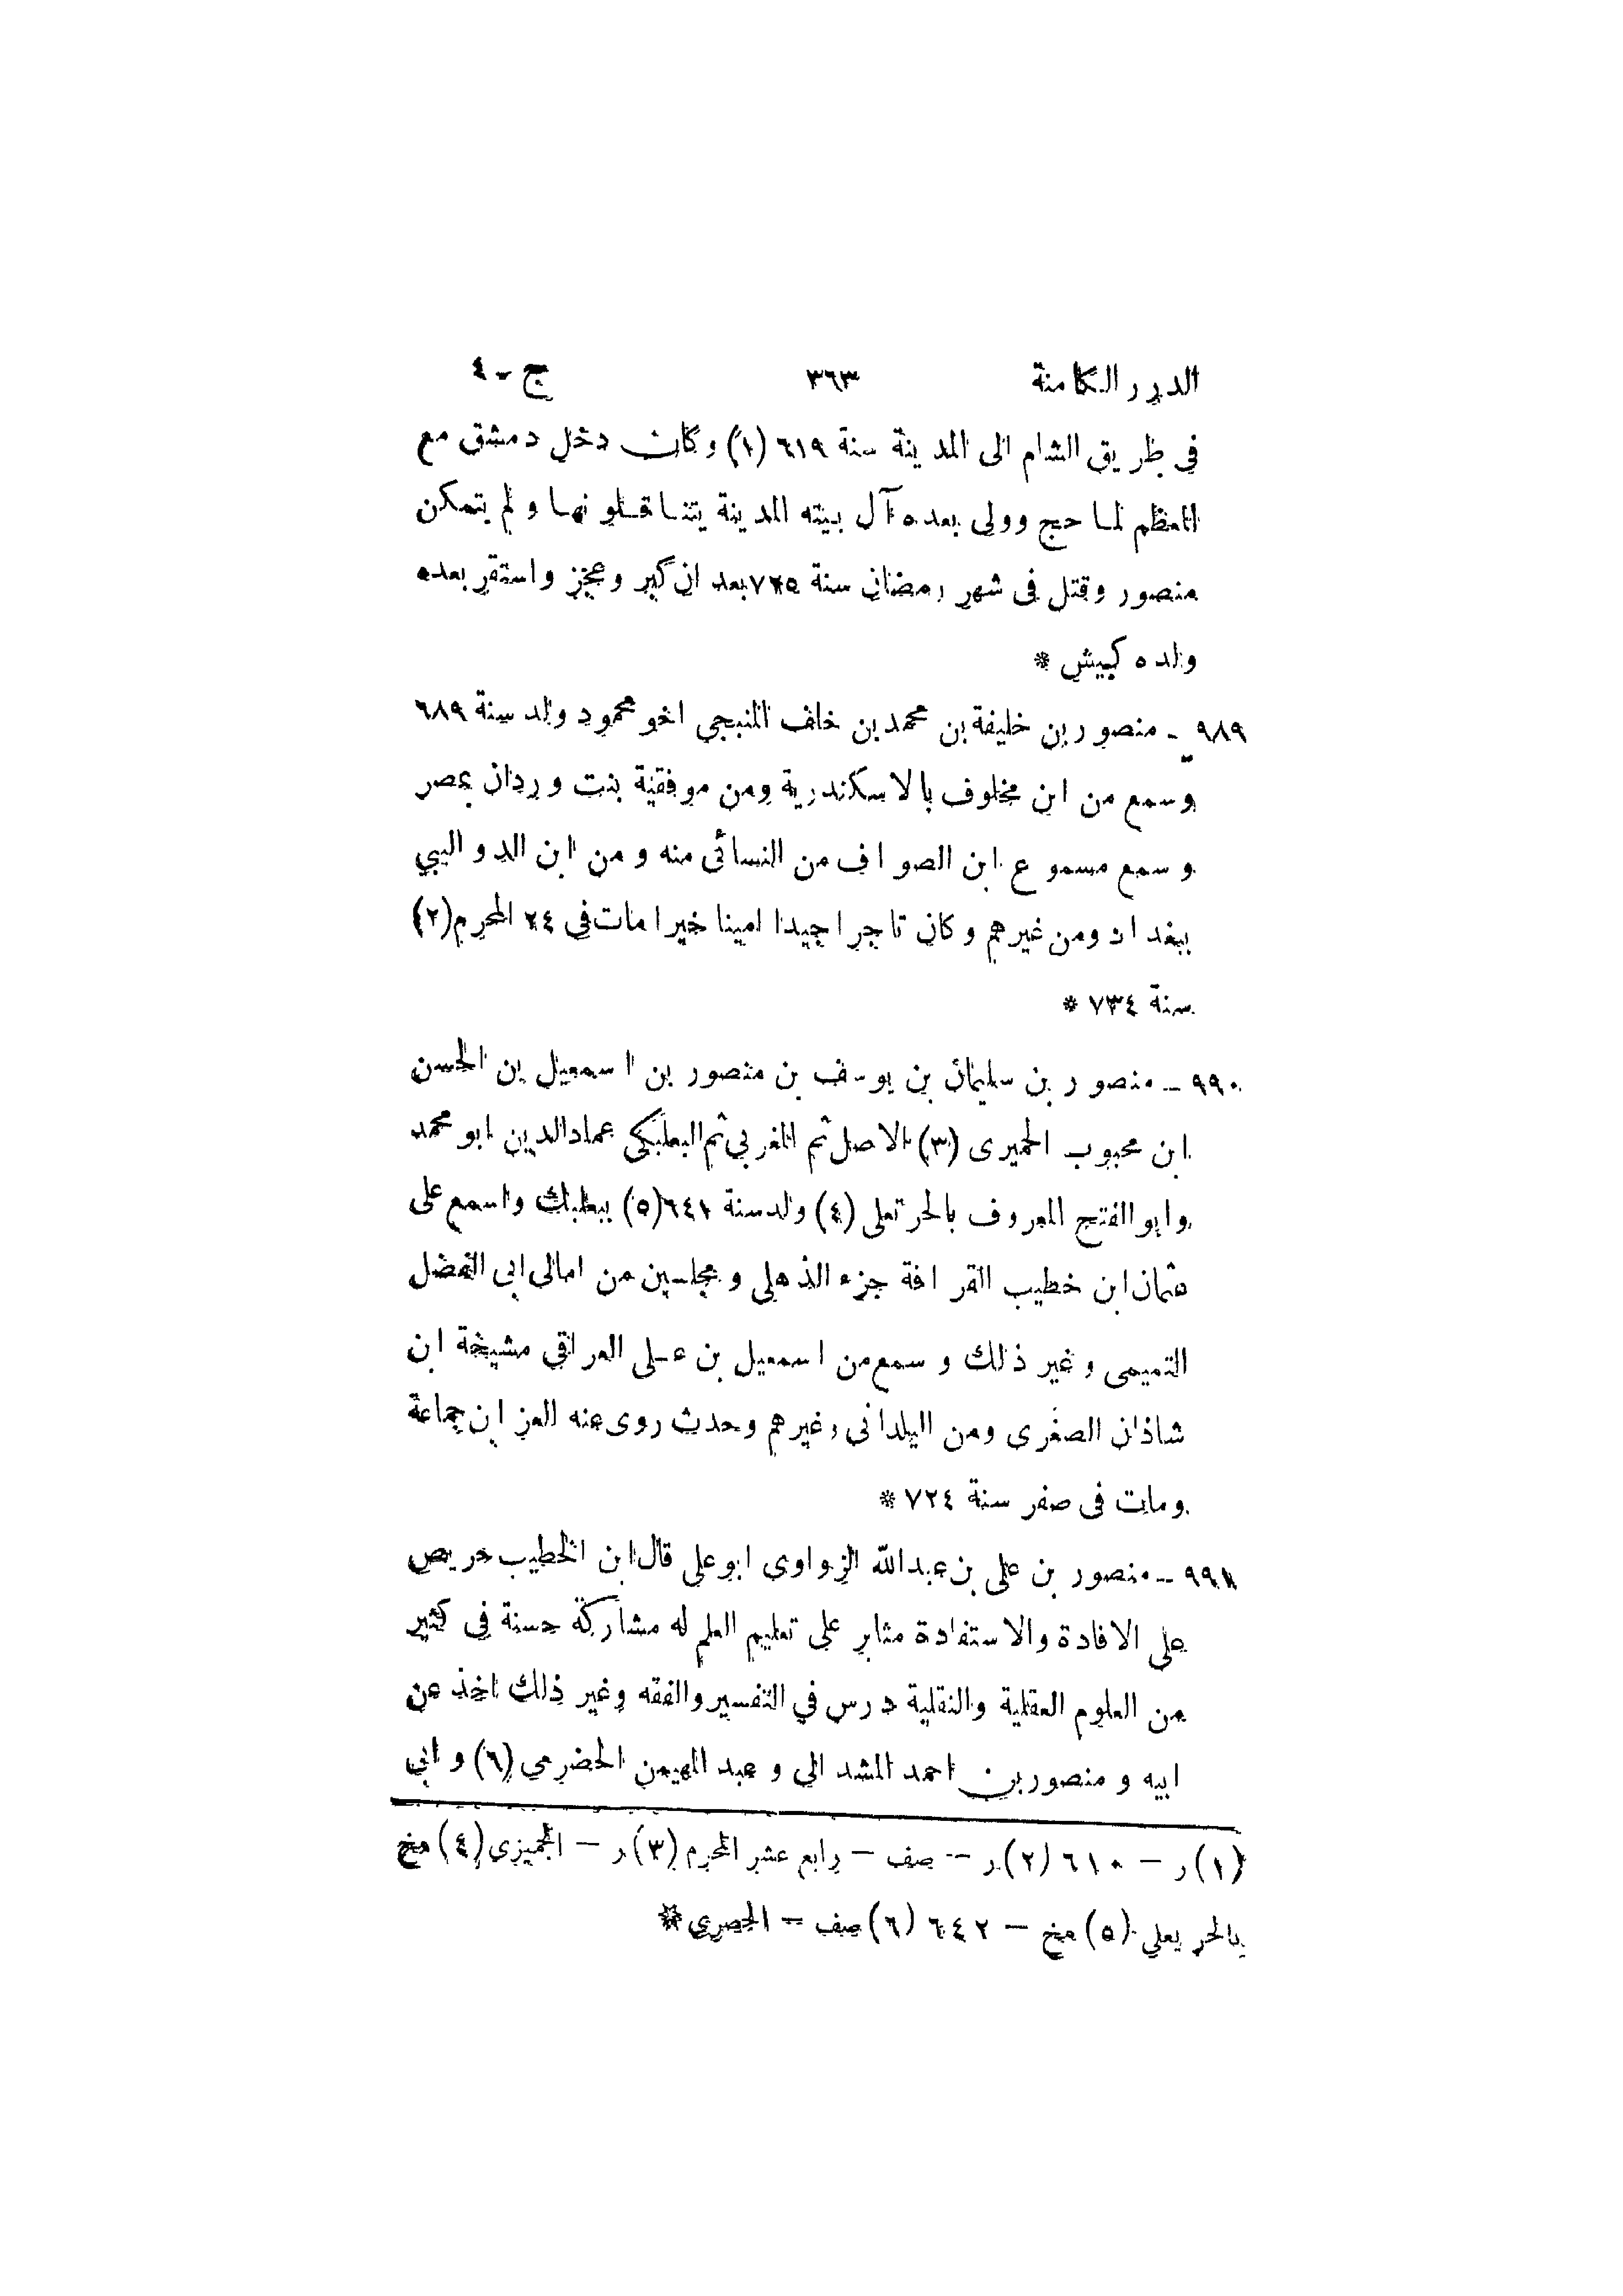 الدرر الكامنة ٣٦٣ ج - ٤
فى طريق الشام الى المدينة سنة ٦١٩ (١) وكان دخل دمشق مع
المعظم لما حج وولى بعده آل بيته المدينة يتناقلونها ولم يتمكن
منصور وقتل فى شهر رمضان سنة ٧٢٥ بعد ان كبر وعجز واستقر بعده
ولده كبيش *
٩٨٩ - منصور بن خليفة بن محمد بن خلف المنبجى اخو محمود ولد سنة ٦٨٩
وسمع من ابن مخلوف بالاسكندرية ومن موفقية بنت وردان بمصر
وسمع مسموع ابن الصواف من النسائى منه ومن ابن الدواليبي
ببغداد ومن غيرهم وكان تاجرا جيدا امينا خيرا مات فى ٢٤ المحرم (٢)
سنة ٧٣٤ *
٩٩٠ - منصور بن سليمان بن يوسف بن منصور بن اسمعيل بن الحسن
ابن محبوب الحميرى (٣) الاصل ثم المغربي ثم البعلبكى عماد الدين ابو محمد
وابو الفتح المعروف بالحرتعلى (٤) ولد سنة ٦٤١ (٥) ببعلبك واسمع على
عثمان ابن خطيب القرافة جزء الذهلى ومجلسين من امالى ابى الفضل
التميمى وغير ذلك وسمع من اسمعيل بن على العراقى مشيخة ابن
شاذان الصغرى ومن اليلدانى وغيرهم وحدث روى عنه العز ابن جماعة
ومات فى صفر سنة ٧٢٤ *
٩٩١ - منصور بن على بن عبدالله الزواوى ابو على قال ابن الخطيب حريص
على الافادة والاستفادة مثابر على تعليم العلم له مشاركة حسنة فى كثير
من العلوم العقلية والنقلية درس في التفسير والفقه وغير ذلك اخذ عن
ابيه ومنصور بن احمد المشدالى وعبد المهيمن الحضرمي (٦) وابي
(١) ر - ٦١٠ (٢) ر - صف - رابع عشر المحرم (٣) ر - الجميزى (٤) مخ
بالحريعلى (٥) مخ - ٦٤٢ (٦) صف - الحصرى *